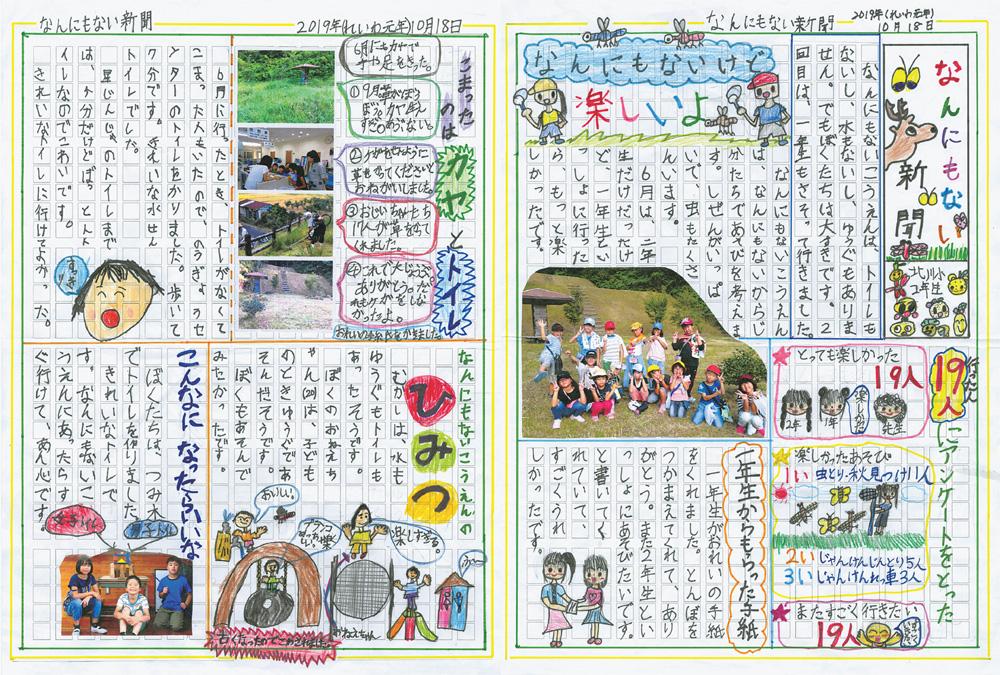 なんにもない新聞
2019年(れいわ元年)
10月18日
なんにもない新聞
北川小
2年生
なんにもないこうえんは、トイレも
ないし、水もないし、ゆうぐもありま
せん。でもぼくたちは大すきです。2
回目は、一年生もさそって行きました。
なんにもないけど
楽しいよ
は、なんにもないからじ
分たちであそびを考えま
す。しぜんがいっぱ
いで、虫もたくさ
んいます。
6月は、二年
生だけだったけ
ど、一年生とい
っしょに行った
ら、もっと楽
しかったです。
19人にアンケートをとった
とっても楽しかった
19人
2年
1年
先生
楽しかったあそび
1い 虫とり・秋見つけ11人
2い じゃんけんじんとり5人
3い じゃんけんれっ車3人
またすごく行きたい
19人
一年生からもらった手紙
一年生がおれいの手紙
をくれました。とんぼを
つかまえてくれて、あり
がとう。また2年生とい
っしょにあそびたいです。
と書いていて、
すごくうれ
しかったです。
なんにもない新聞
2019年(れいわ元年)10月18日
こまったのは
カヤとトイレ
6月にもカヤで
手や足をきった。
①9月草がぼう
ぼう。カヤで足が
すごくあぶない。
おねがいしました。
③おじいちゃんたち
17人が草を切って
くれました。
④これで大じょうぶ。
ありがとう。だ
れもケガをしな
かったよ。
おれいの手紙を書きました
6月に行ったとき、トイレがなくて
こまった人もいたので、のうぎょうセ
ンターのトイレをかりました。歩いて
7分です。きれいな水せん
トイレでした。
星じんじゃのトイレまで
は、5分だけどぼっとんト
イレなのでこわいです。
きれいなトイレに行けてよかった。
なんにもないこうえんの
ひみつ
むかしは、水も
ゆうぐもトイレも
あったそうです。
ぼくのおねえち
ゃん(20)は、子ども
のときゆうぐであ
そんだそうです。
ぼくもあそんで
みたかったです。
おいしい。
楽しすぎる。
おねえちゃん
古くなったのでこわされました。
こんなになったらいいな
ぼくたちは、つみ木
でトイレを作りました。
きれいなトイレで
す。なんにもないこ
うえんにあったらす
ぐ行けて、あん心です。
女子トイレ
男子トイレ